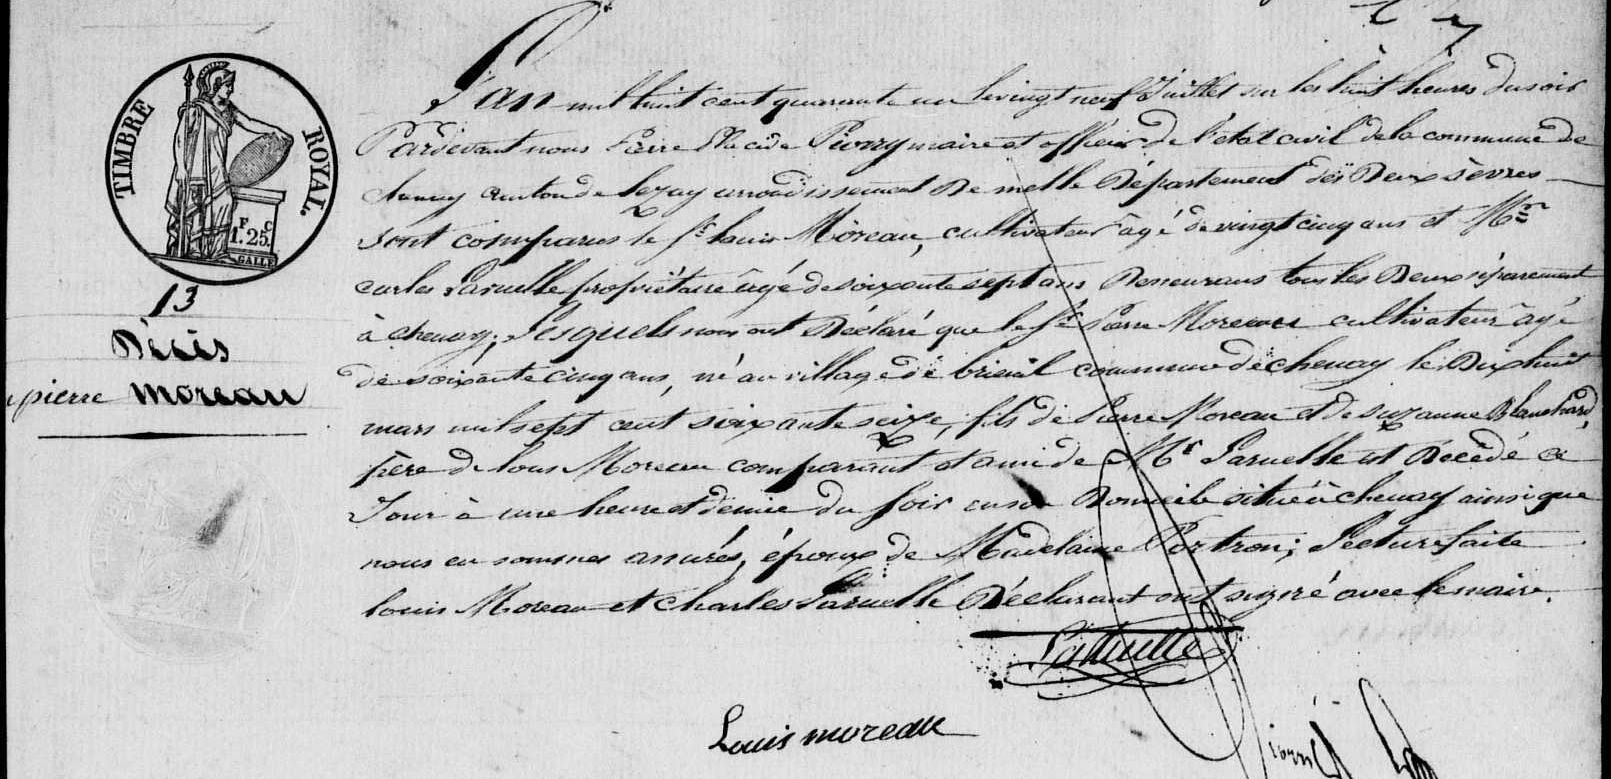 TIMBRE ROYAL.
F C
1.25.
GALLE
13
Décès
pierre Moreau
L'an mil huit cent quarante un le vingt neuf Juillet sur les huit heures du soir
Pardevant nous Pierre Placide Piorry maire et officier de l'état civil de la commune de
chenay canton de lezay arrondissement De melle Département des Deux sèvres
sont comparus le Sr. louis Moreau, cultivateur âgé de vingt cinq ans et Mr.
carles propriétaire âgé de soixante sept ans Demeurans tous les Deux séparement
à chenay; Lesquels nous ont Déclaré que le Sr. Pierre Moreau cultivateur âgé
de soixante cinq ans, né au village de brieuil commune de chenay le Dix huit
mars mil sept cent soixante seize, fils de Pierre Moreau et de suzanne Blanchard,
père de louis Moreau comparant et ami de Mr est Décédé ce
Jour à une heure et demie du soir en son Domicile situé à chenay ainsi que
nous en sommes assurés, époux de Madelaine Portron; Lecture faite
louis Moreau et charles Déclarant ont signé avec le maire.
Louis moreau